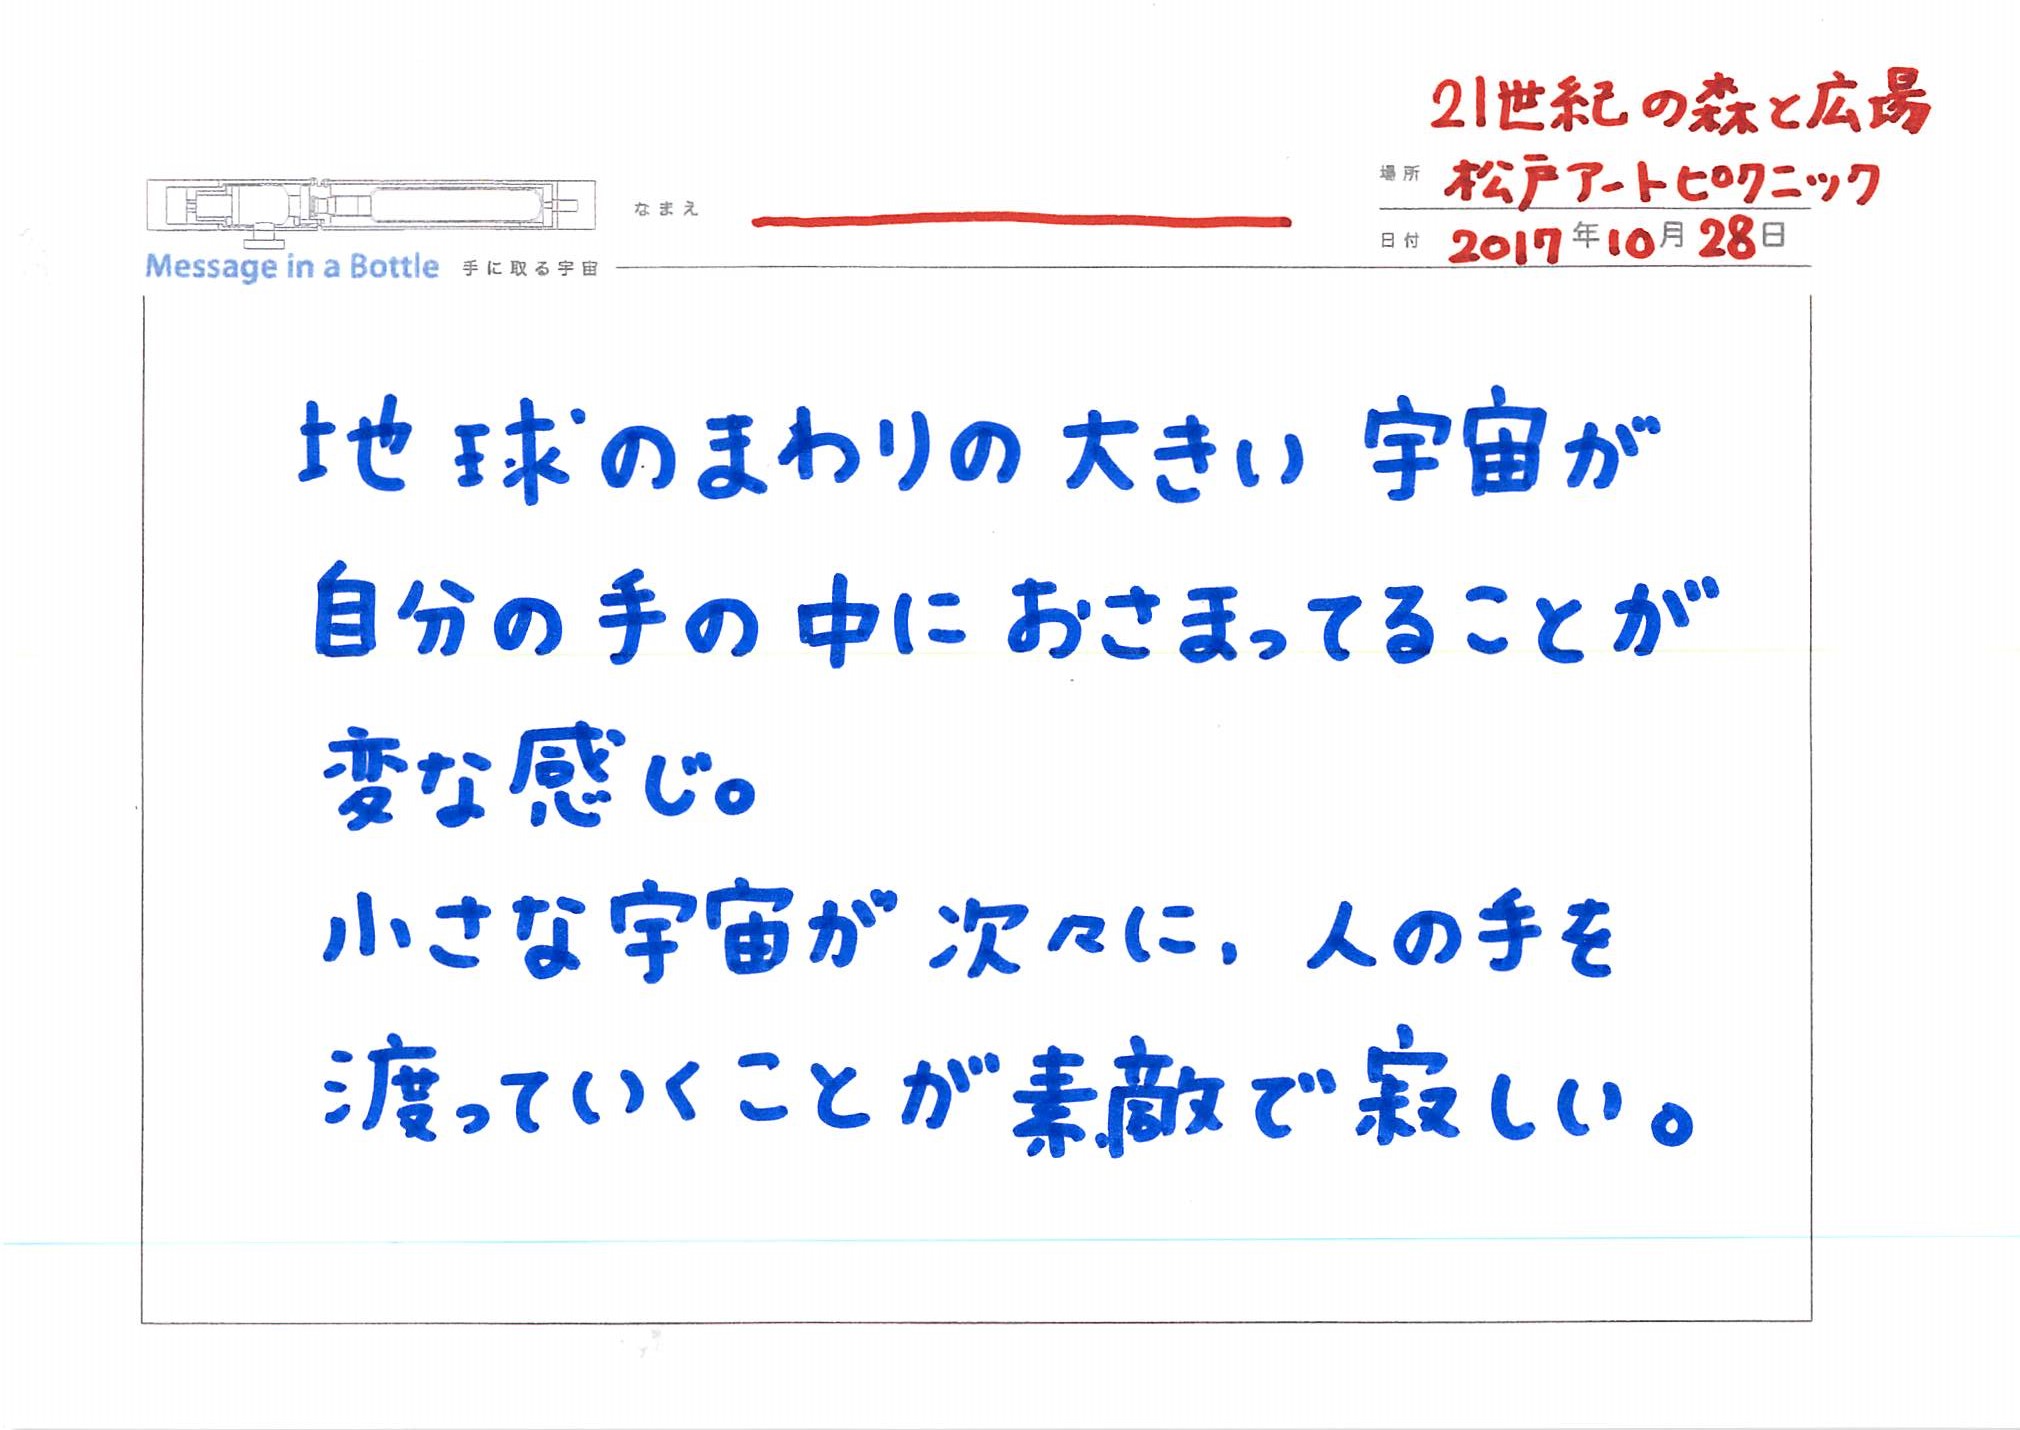 21世紀の森と広場
場所 松戸アートピクニック
なまえ
日付 2017年10月28日
Message in a Bottle 手に取る宇宙
地球のまわりの大きい宇宙が
自分の手の中におさまってることが
変な感じ。
小さな宇宙が次々に,人の手を
渡っていくことが素敵で寂しい。